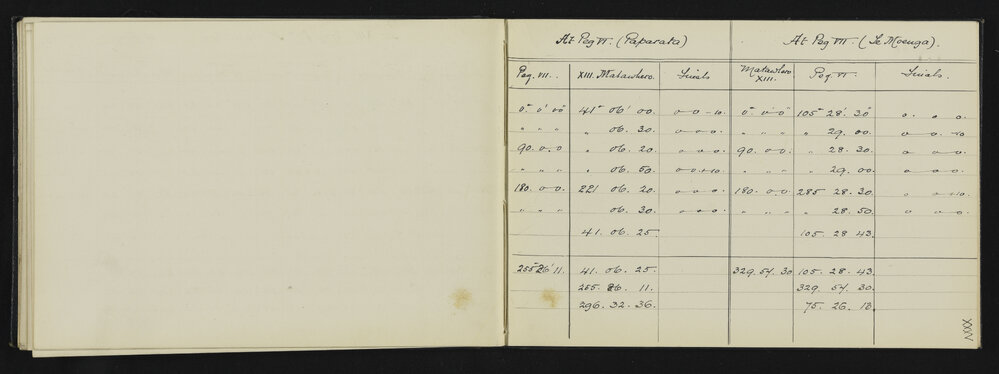 At Peg VI. (Paparata) At Peg VII. (Te Moenga).
Peg. VII. XIII. Matawhero. Finals Matawhero XIII. Peg. VI. Finals.
0° 0' 00" 41° 06' 00. 0 0 -10. 0° 0' 0" 105° 28' 30" 0. 0. 0.
" " " " 06. 30. 0 0 0. " " " " 29. 00. 0 0
90. 0. 0 " 06. 20. 0 0 0. 90. 0 0. " 28. 30. 0 0 0.
" " " " 06. 50. 0 0 +10. " " " " 29. 00. 0 0 0.
180. 0 0. 221 06. 20. 0 0 0. 180. 0 0. 285 28. 30. 0
" " " 06. 30. 0 0 0. " " " " 28. 50. 0 0 0.
41. 06. 25. 105. 28 43.
255° 26' 11. 41. 06. 25. 329. 57. 30 105. 28. 43.
255. 26. 11. 329. 57. 30.
296. 32. 36. 75. 26. 13.
XXXV